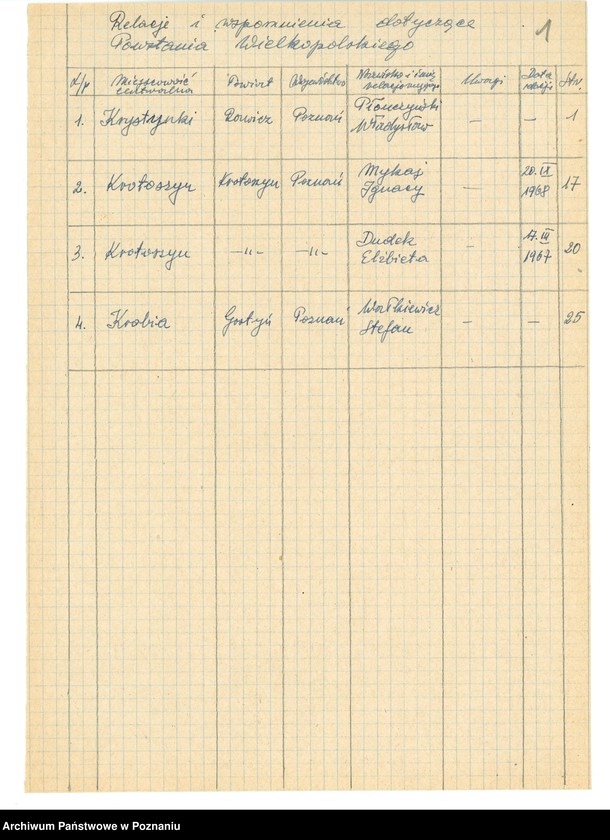 Relacje i wspomnienia dotyczące
Powstania Wielkopolskiego
1
L/p Miejscowość centralna Powiat Województwo Nazwisko i imię relacjonującego Uwagi Data relacji Str.
1. Krystynki Rawicz Poznań Płończyński Władysław — — 1
2. Krotoszyn Krotoszyn Poznań Mykaj Ignacy — 20.IX 1968 17
3. Krotoszyn —„— —„— Dudek Elżbieta - 17.III 1967 20
4. Krobia Gostyń Poznań Wałkiewicz Stefan — — 25
Archiwum Państwowe w Poznaniu